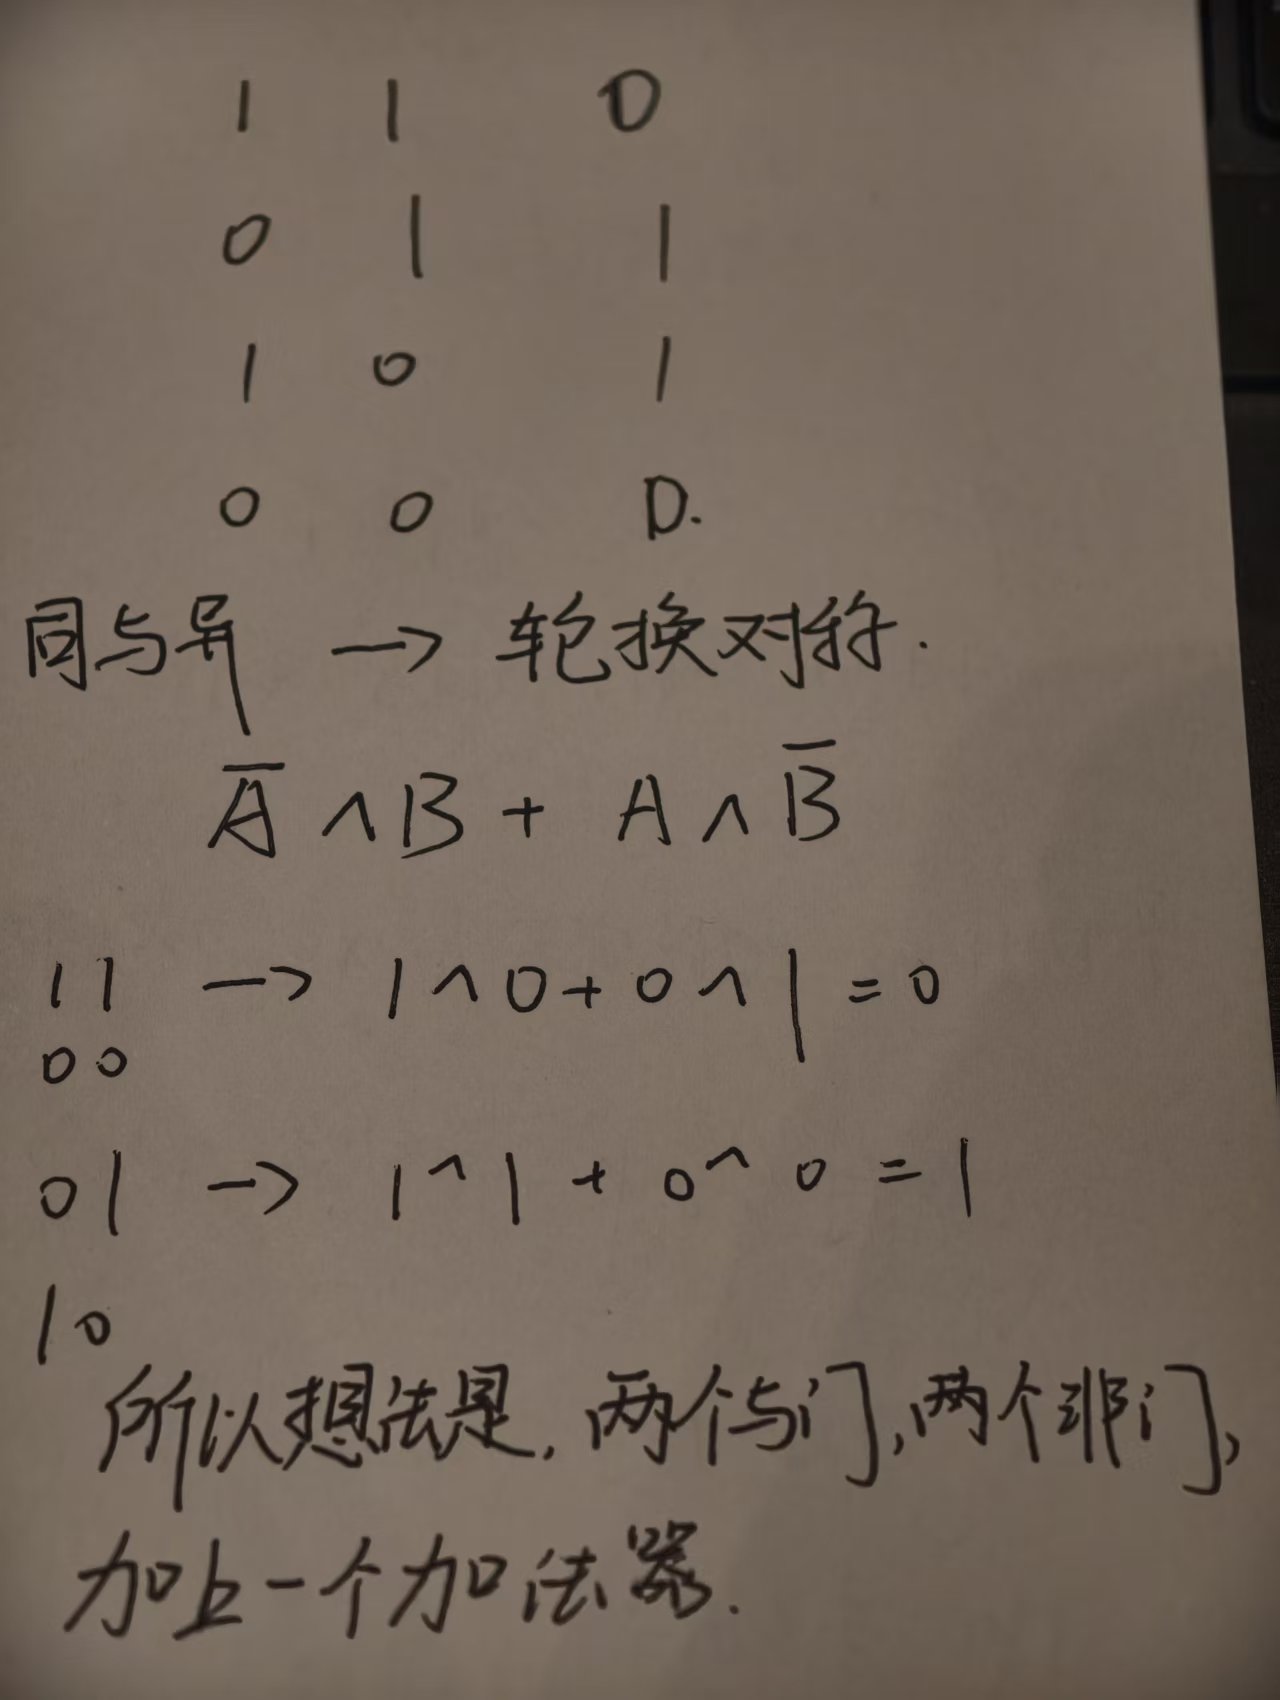 1 1 0
0 1 1
1 0 1
0 0 0.
同与异 → 轮换对称.
A̅ ∧ B + A ∧ B̅
1 1 → 1 ∧ 0 + 0 ∧ 1 = 0
0 0
0 1 → 1 ∧ 1 + 0 ∧ 0 = 1
1 0
所以想法是, 两个与门, 两个非门,
加上一个加法器.